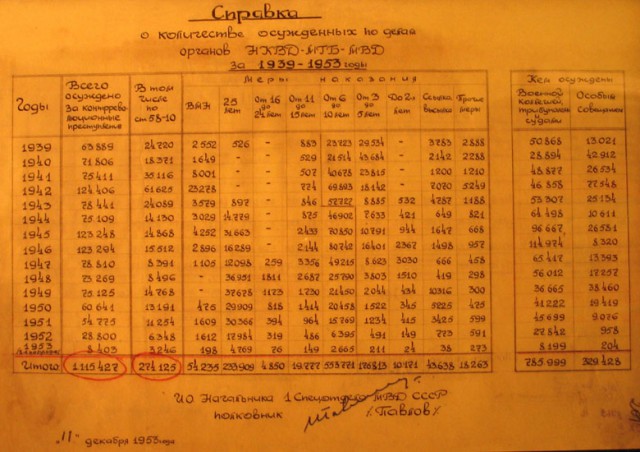 Справка
о количестве осужденных по делам
органов НКВД-МГБ-МВД
за 1939-1953 годы
Меры наказания
Кем осуждены
Годы
Всего осуждено за контрреволюционные преступления
В том числе по ст 58-10
ВМН
25 лет
От 16 до 24 лет
От 11 до 15 лет
От 6 до 10 лет
От 3 до 5 лет
До 2х лет
Ссылка высылка
Прочие меры
Военной коллегией, трибуналами судами
Особым совещанием
1939 63889 24720 2552 526 - 883 23723 29534 - 3783 2888 50.868 13.021
1940 71.806 18.371 1649 - - 529 21514 43684 - 2142 2288 28.894 42.912
1941 75411 35116 8.001 - - 507 40678 23815 - 1200 1210 48.877 26.534
1942 124406 61625 23278 - - 774 18142 - 7070 5249 46.858 77548
1943 78.441 24089 3579 897 - 846 8.885 532 4787 1188 53.307 25.134
1944 75.109 14.130 3029 - 875 46902 421 649 821 64498 10.611
1945 123.248 14.868 4252 31.663 - 70850 10791 944 1647 668 96.667 26.581
1946 123.294 15.512 2896 16289 - 2144 80742 16401 2367 1498 957 114.974 8.320
1947 78.810 8.391 1105 12098 259 3356 49215 8.623 3030 666 458 65.417 13.393
1948 73.269 8.496 - 36.951 1811 2687 25790 3803 1510 419 298 56.012 17257
1949 75.125 14.768 - 37678 1173 1730 21450 2044 434 10316 300 36.665 38.460
1950 60.641 13.191 475 29909 818 1414 20458 1522 345 5225 475 41.222 19.419
1951 54.775 11.254 1609 30366 394 964 15769 1234 415 3425 599 45.699 9.076
1952 28.800 6.348 1612 17984 319 486 6395 491 149 773 591 27.842 958
1953 8.403 3.246 198 4769 76 149 2665 211 24 38 273 8.199 204
Итого 1.115.427 274.125 54235 233909 4.850 19777 10.171 43638 18263 785.999 329.428
ИО Начальника 1 Спецотдела МВД СССР
полковник /Павлов/
"11" декабря 1953 года